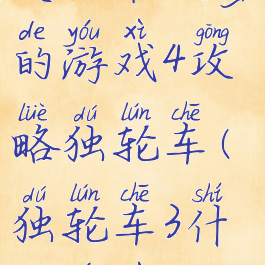 de yóu xì gōng
的游戏4攻
lüè dú lún chē
略独轮车(
dú lún chē shí
独轮车3什